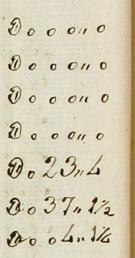 D o o o o „ o
D o o o o „ o
D o o o o „ o
D o o o o „ o
D o 23 „ 4
D o 37 „ 1/2
D o o 4 „ 1/2